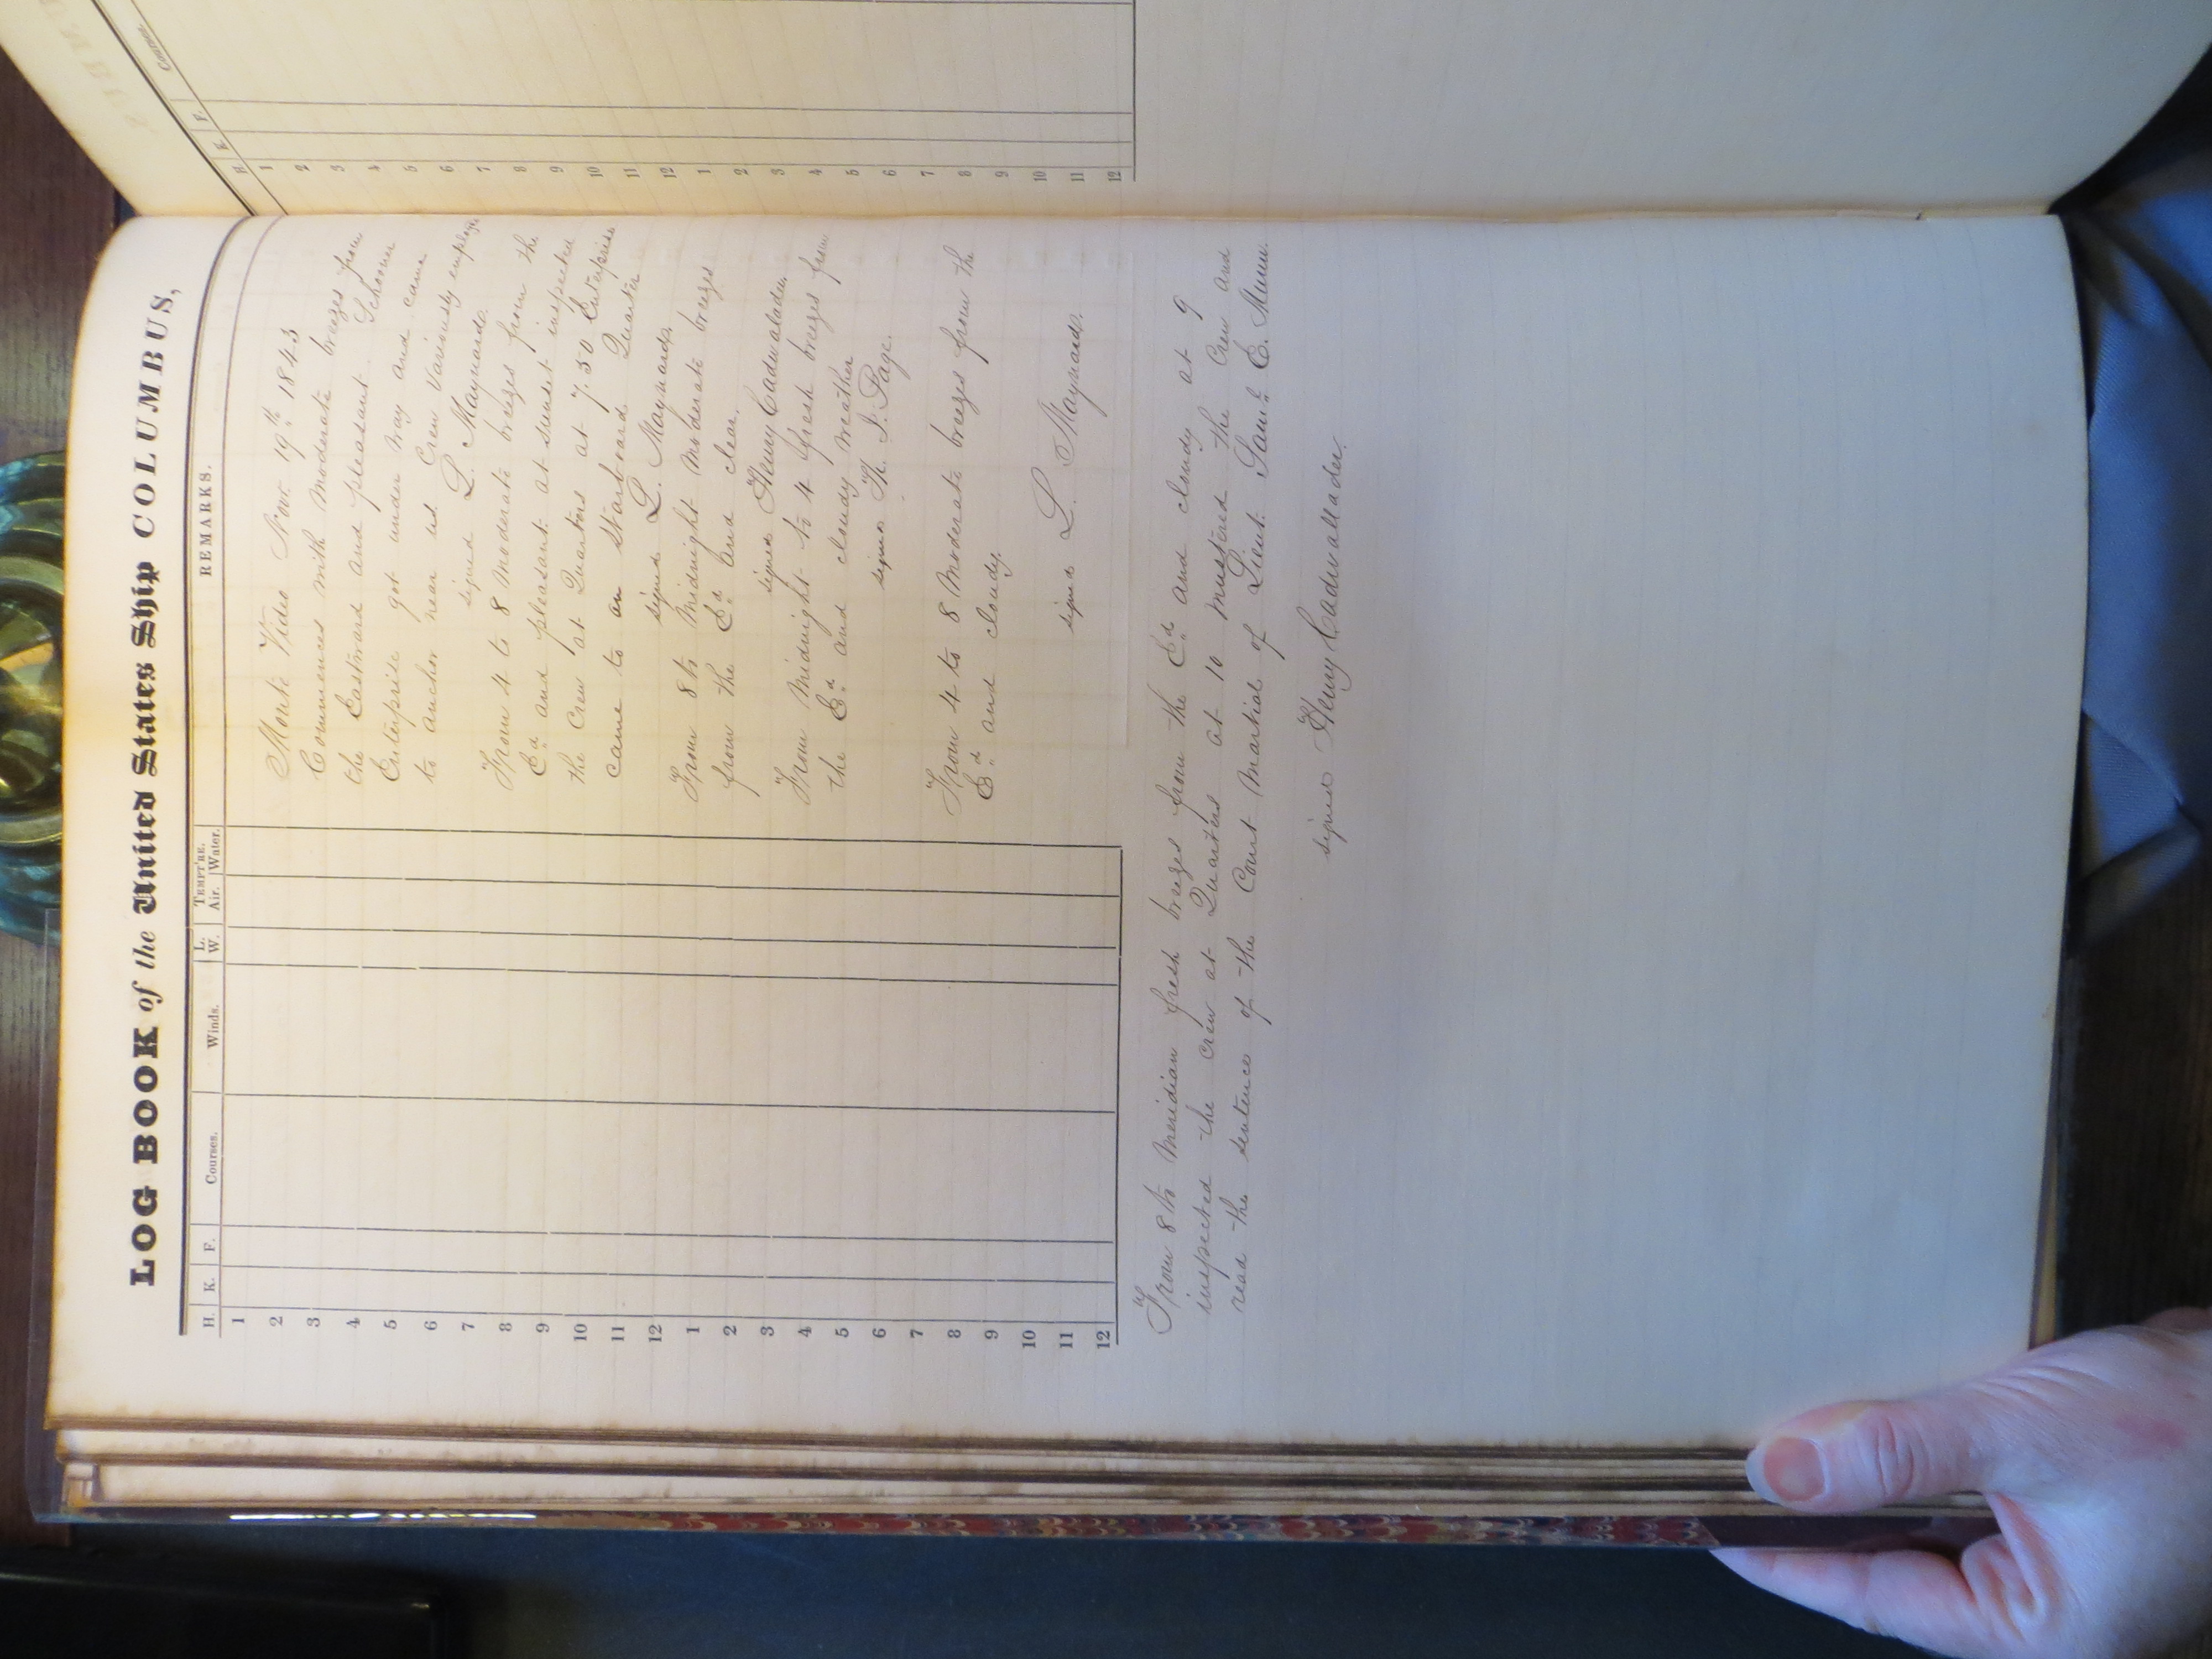 LOG BOOK of the United States Ship COLUMBUS,
H. K. F. Courses. Winds. L. W. TEMPT'RE. Air. Water. REMARKS.
1
2
3
4
5
6
7
8
9
10
11
12
1
2
3
4
5
6
7
8
9
10
11
12
Monte Video Nov. 19th 1843
Commences with moderate breezes from
the Eastward and pleasant. Schooner
Enterprise got under way and came
to anchor near us. Crew Variously employe
signed L. Maynard.
From 4 to 8 Moderate breezes from the
Ed and pleasant. at sunset inspected
the Crew at Quarters at 7.30 Enterprise
came to on Starboard Quarter
signed L. Maynard.
From 8 to Midnight Moderate breezes
from the Ed and clear.
signed Henry Cadwalader
From Midnight to 4 fresh breezes from
the Ed and cloudy weather
signed Th. J. Page.
From 4 to 8 Moderate breezes from the
Ed and cloudy.
signed L. Maynard.
From 8 to Meridian fresh breezes from the Ed and cloudy at 9
inspected the crew at Quarters at 10 mustered the Crew and
read the sentence of the Court Martial of Lieut. Saml E. Munn.
signed Henry Cadwallader.
H. K. F. Courses
1
2
3
4
5
6
7
8
9
10
11
12
1
2
3
4
5
6
7
8
9
10
11
12